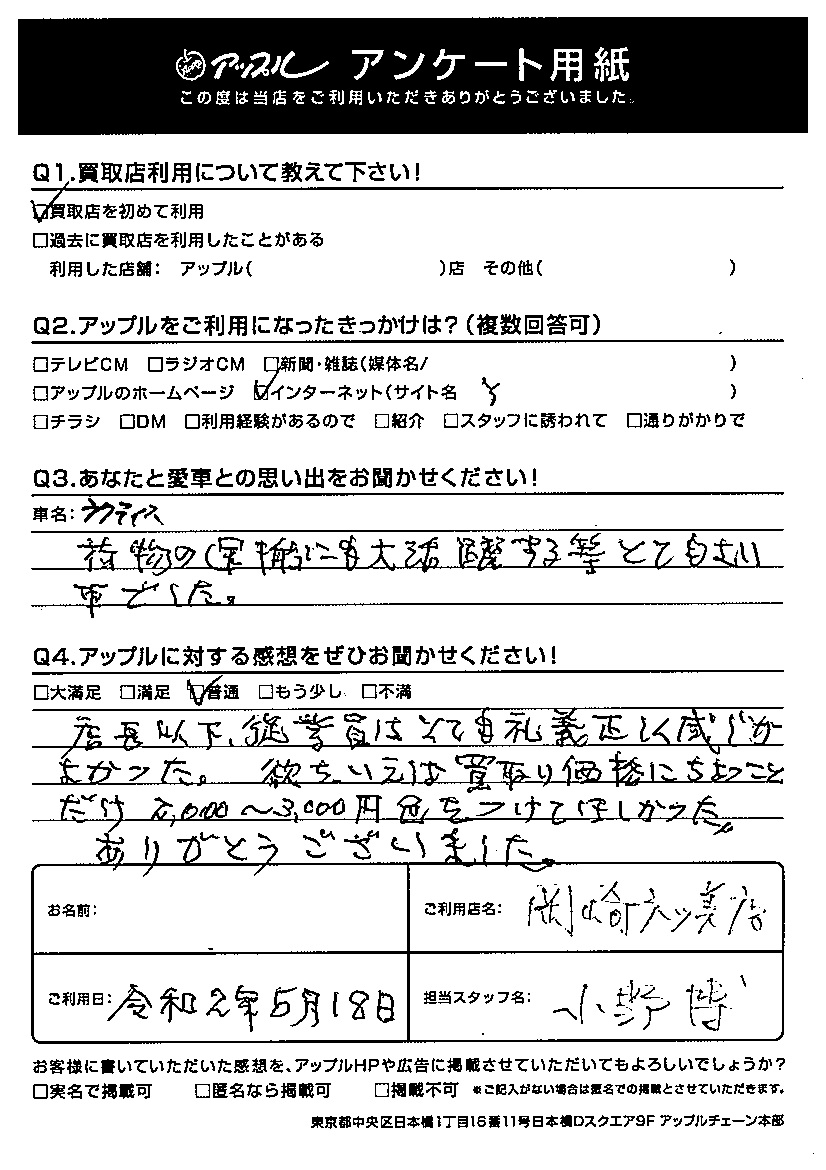 アップル アンケート用紙
この度は当店をご利用いただきありがとうございました。
Q1.買取店利用について教えて下さい!
☑買取店を初めて利用
□過去に買取店を利用したことがある
利用した店舗: アップル( )店 その他( )
Q2.アップルをご利用になったきっかけは?(複数回答可)
□テレビCM □ラジオCM □新聞・雑誌(媒体名/ )
□アップルのホームページ ☑インターネット(サイト名 )
□チラシ □DM □利用経験があるので □紹介 □スタッフに誘われて □通りがかりで
Q3.あなたと愛車との思い出をお聞かせください!
車名: ラクティス
荷物の運搬にも大活躍する等とても良い
車でした。
Q4.アップルに対する感想をぜひお聞かせください!
□大満足 □満足 ☑普通 □もう少し □不満
店長以下、従業員はとても礼義正しく感じが
よかった。 欲をいえば買取り価格にちょっこと
だけ 2,000〜3,000円色をつけてほしかった。
ありがとうございました。
お名前:
ご利用店名: 岡崎六ッ美店
ご利用日: 令和2年5月18日
担当スタッフ名: 小野 博
お客様に書いていただいた感想を、アップルHPや広告に掲載させていただいてもよろしいでしょうか?
□実名で掲載可 □匿名なら掲載可 □掲載不可 ※ご記入がない場合は匿名での掲載とさせていただきます。
東京都中央区日本橋1丁目16番11号日本橋Dスクエア9F アップルチェーン本部